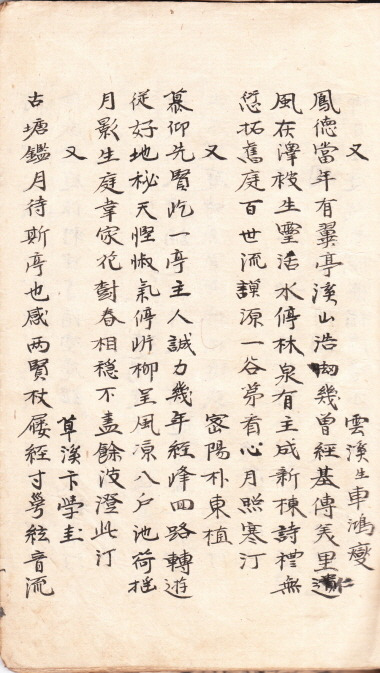 又 雲溪生車鴻燮
鳳德當年有翼亭溪山浩劫幾曾經基傳美里仁
風在澤被生靈活水停林泉有主成新棟詩禮無
愆拓舊庭百世流謨源一谷第看心月照寒汀
又 密陽朴東植
慕仰先賢屹一亭主人誠力幾年經峰回路轉遊
從好地秘天慳淑氣停岸柳呈風凉入戶池荷搖
月影生庭韋家花對春相穩不盡餘波澄此汀
又 草溪卞學圭
古塘鑑月待斯亭也感两賢杖屨經寸絃音流